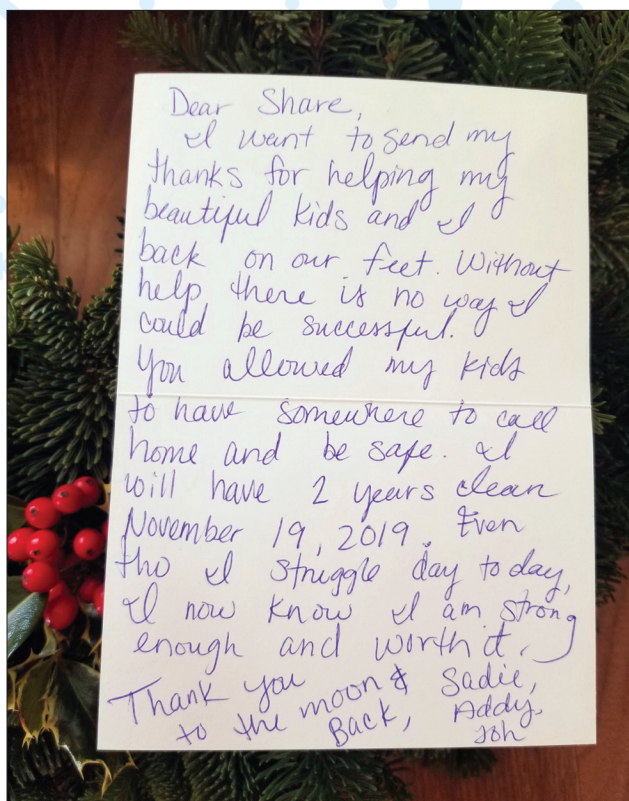 Dear Share,
I want to send my
thanks for helping my
beautiful kids and I
back on our feet. Without
help, there is no way I
could be successful.
You allowed my kids
to have somewhere to call
home and be safe. I
will have 2 years clean
November 19, 2019. Even
tho I struggle day to day,
I now know I am strong
enough and worth it.
Thank you
to the moon &
Back,
Sadie,
Addy,